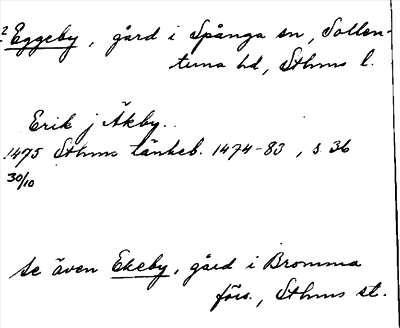 2 Eggeby, gård i Spånga sn, Sollen-
tuna hd, Sthms l.
Erik j Äkby.
1475 Sthms tänkeb. 1474-83, s 36
30/10
Se även Ekeby, gård i Bromma
förs., Sthms st.